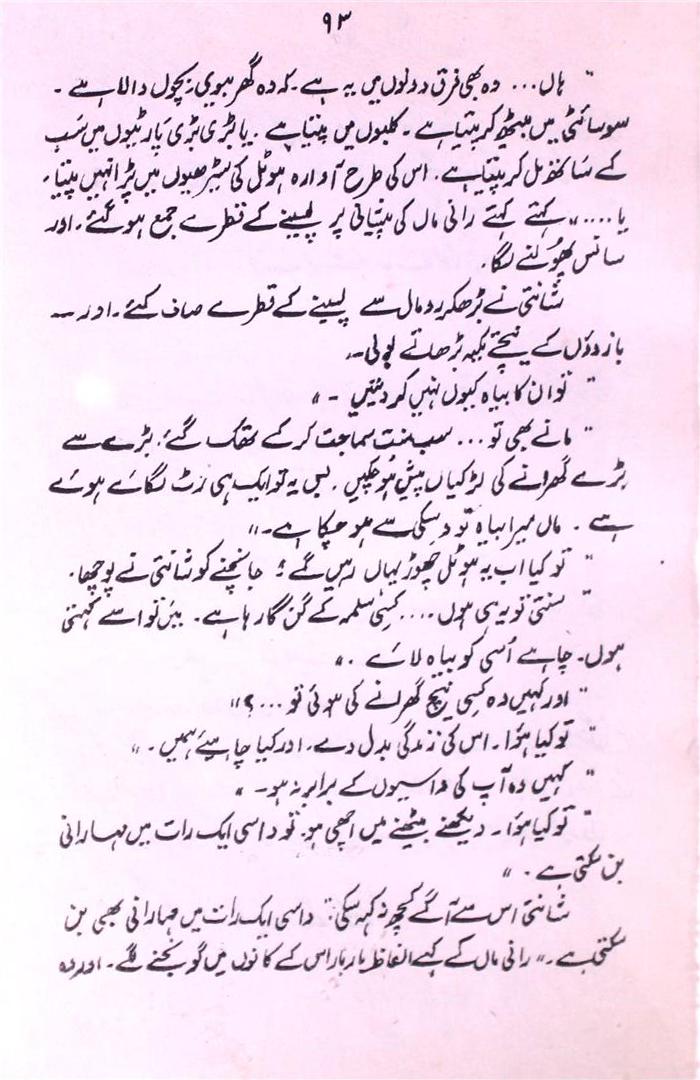 ۹۳
" ہاں... وہ بھی فرق دونوں میں یہ ہے۔ کہ وہ گھر بیوی بچوں والا ہے۔
سوسائٹی میں بیٹھ کر پیتا ہے۔ کلبوں میں پیتا ہے۔ یا بڑی بڑی پارٹیوں میں سب
کے ساتھ مل کر پیتا ہے۔ اس کی طرح آوارہ ہوٹل کی سیڑھیوں میں پڑا نہیں پیتا۔
یا....،، کہتے کہتے رانی ماں کی پیشانی پر پسینے کے قطرے جمع ہو گئے۔ اور
سانس پھولنے لگا۔
شانتی نے بڑھکر رومال سے پسینے کے قطرے صاف کئے۔ اور --
بازوؤں کے نیچے تکیہ بڑھاتے بولی۔
" تو ان کا بیاہ کیوں نہیں کر دیتیں -"
" مانے بھی تو... سب منت سماجت کر کے تھک گئے، بڑے سے
بڑے گھرانے کی لڑکیاں پیش ہو چکیں۔ بس یہ تو ایک ہی رٹ لگائے ہوئے
ہے۔ ماں میرا بیاہ تو وسکی سے ہو چکا ہے۔"
" تو کیا اب یہ ہوٹل چھوڑ یہاں رہیں گے؟ جانچنے کو شانتی نے پوچھا۔
" سنتی تو یہ ہی ہوں.... کسی سلمہ کے گن گا رہا ہے۔ میں تو اسے کہتی
ہوں۔ چاہے اُسی کو بیاہ لائے۔"
" اور کہیں وہ کسی نیچ گھرانے کی ہوئی تو...؟"
" تو کیا ہوا۔ اس کی زندگی بدل دے۔ اور کیا چاہیئے ہمیں۔"
" کہیں وہ آپ کی داسیوں کے برابر نہ ہو۔"
" تو کیا ہوا۔ دیکھنے بیٹھنے میں اچھی ہو۔ تو داسی ایک رات میں مہارانی
بن سکتی ہے۔"
شانتی اس سے آگے کچھ نہ کہہ سکی: " داسی ایک رات میں مہارانی بھی بن
سکتی ہے۔" رانی ماں کے کہے الفاظ بار بار اس کے کانوں میں گونجنے لگے۔ اور وہ